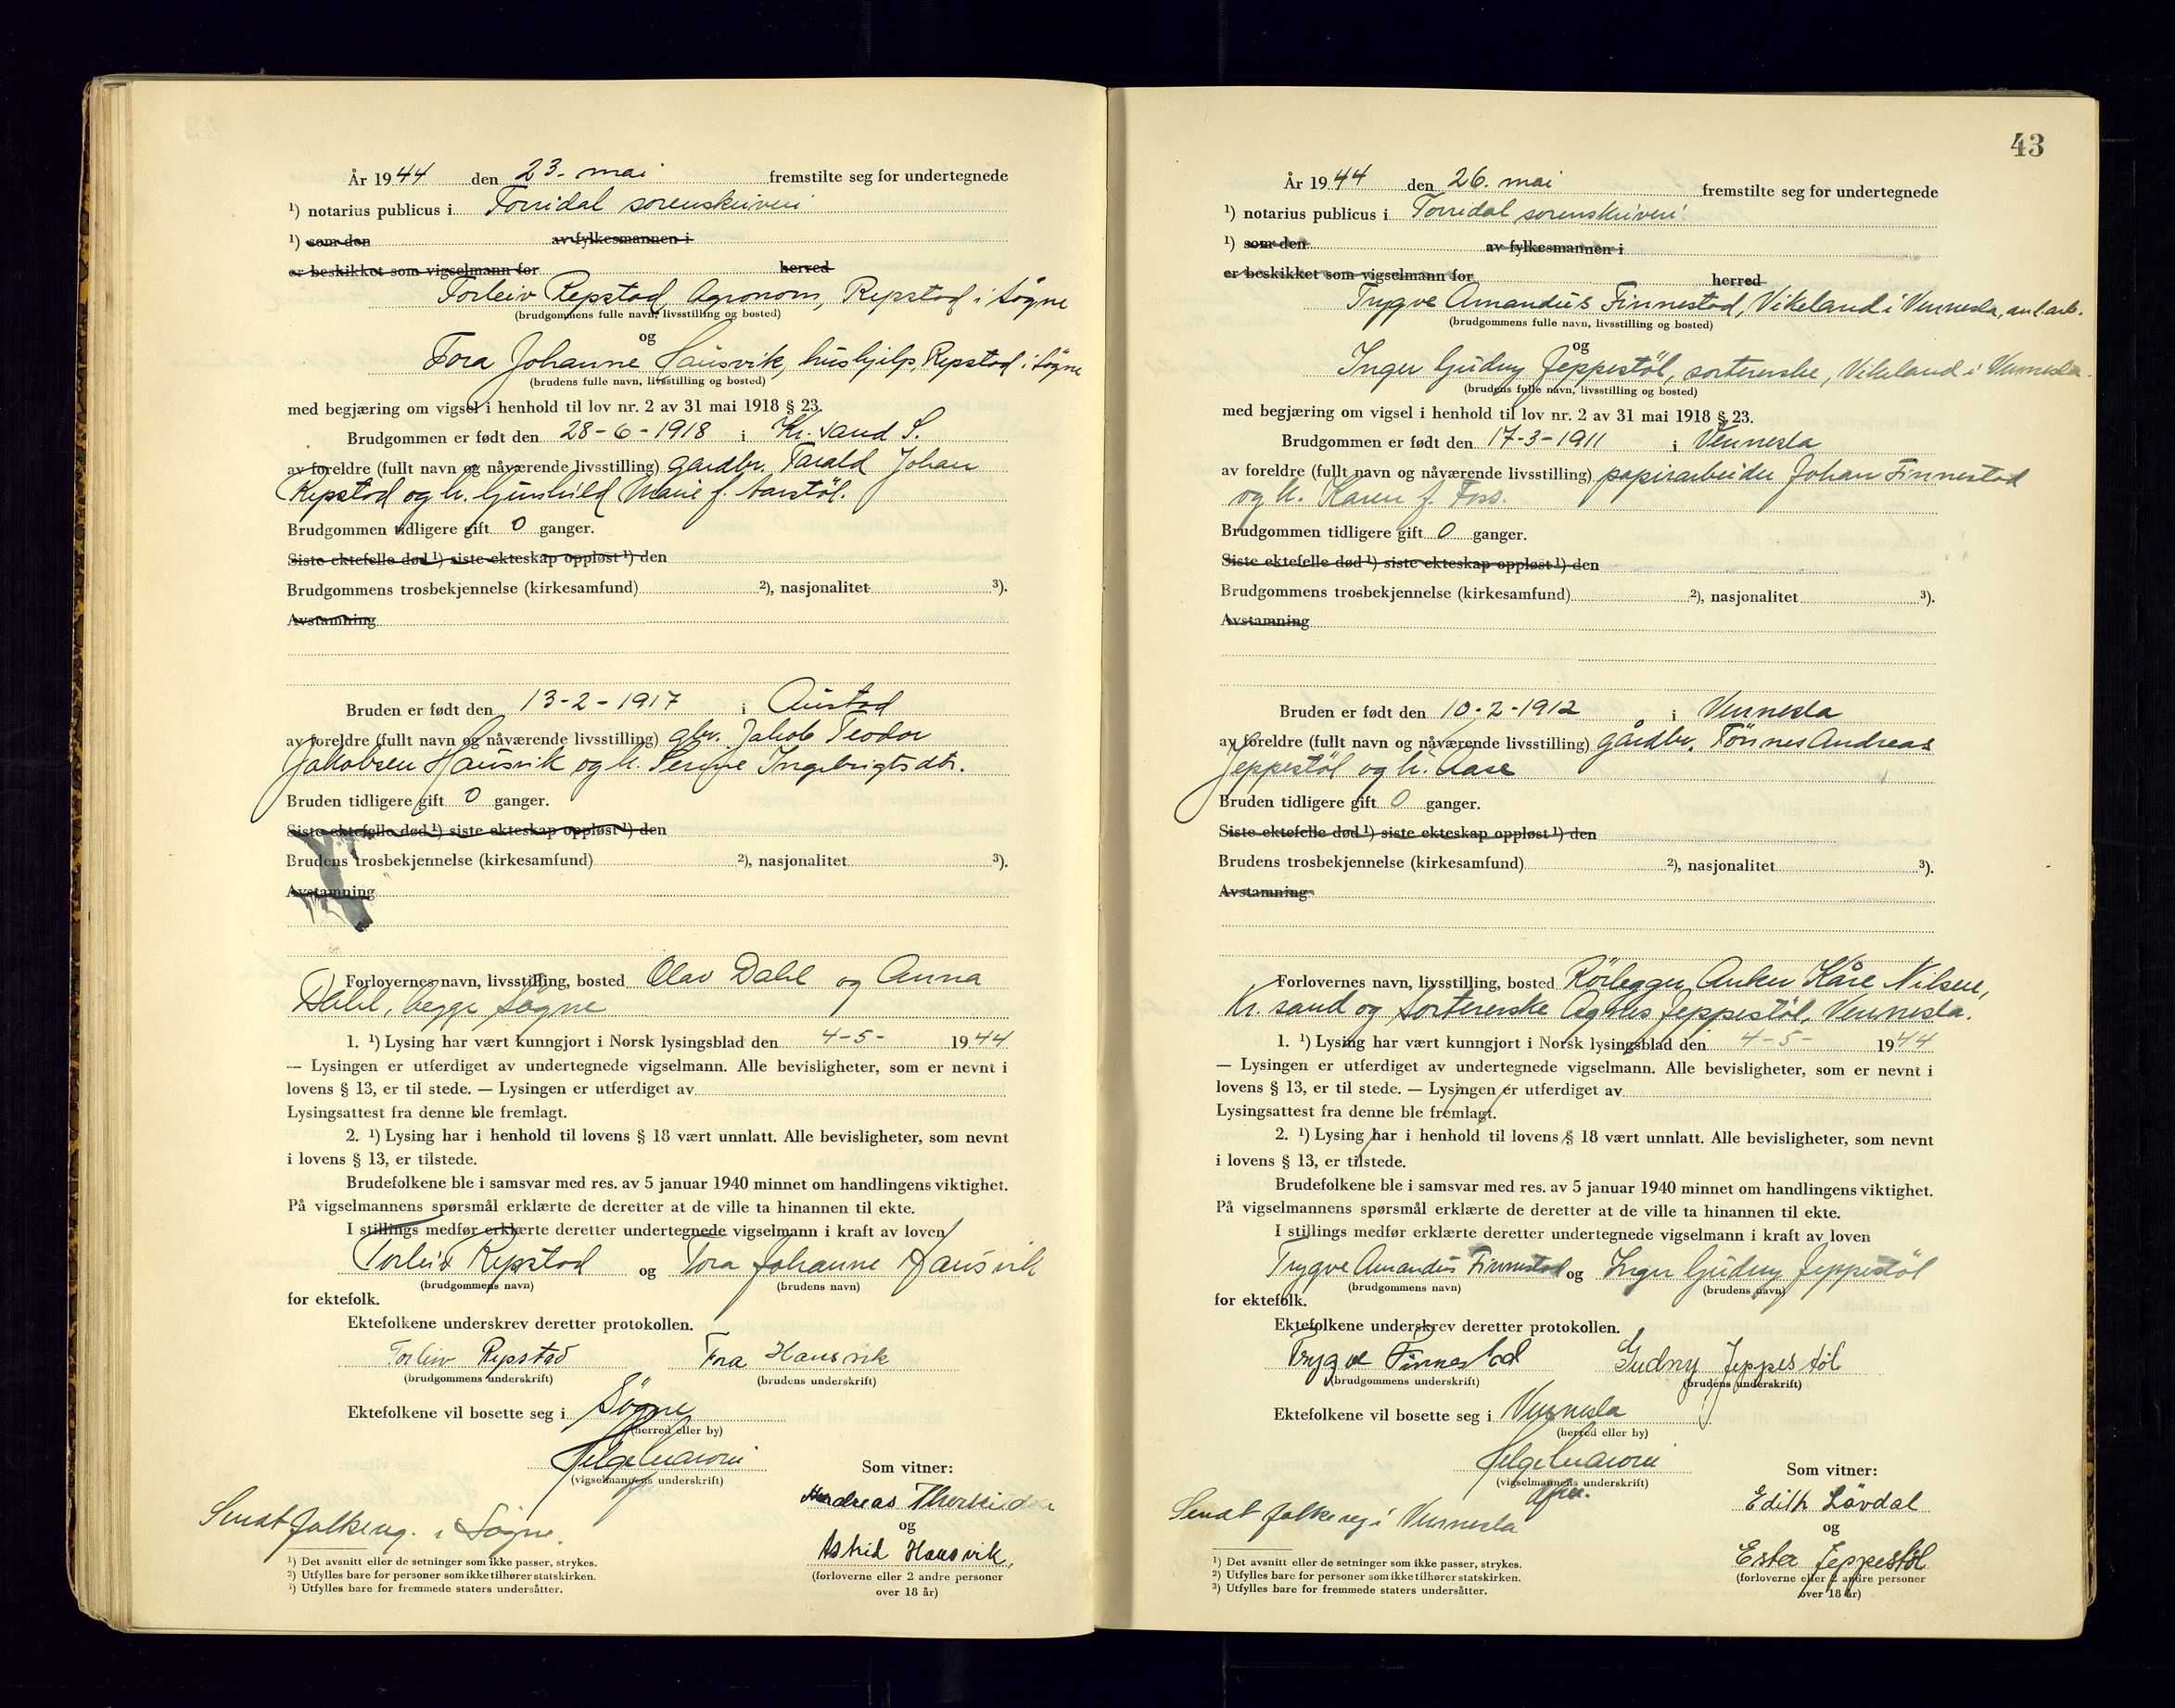 År 1944 den 23. mai fremstilte seg for undertegnede
¹) notarius publicus i Torridal sorenskriveri
¹) som den av fylkesmannen i
er beskikket som vigselmann for herred
Torleiv Repstad, Agronom, Repstad i Søgne
(brudgommens fulle navn, livsstilling og bosted)
og
Tora Johanne Hausvik, hushjelp, Repstad i Søgne
(brudens fulle navn, livsstilling og bosted)
med begjæring om vigsel i henhold til lov nr. 2 av 31 mai 1918 § 23.
Brudgommen er født den 28-6-1918 i Kr.sand S.
av foreldre (fullt navn og nåværende livsstilling) gardbr. Tarald Johan
Repstad og h. Gunhild Marie f. Aarstøl.
Brudgommen tidligere gift 0 ganger.
Siste ektefelle død ¹) siste ekteskap oppløst ¹) den
Brudgommens trosbekjennelse (kirkesamfund) ²), nasjonalitet ³).
Avstamning
Bruden er født den 13-2-1917 i Austad
av foreldre (fullt navn og nåværende livsstilling) gbr. Jakob Teodor
Jakobsen Hausvik og h. Serine Ingebrigtsdtr.
Bruden tidligere gift 0 ganger.
Siste ektefelle død ¹) siste ekteskap oppløst ¹) den
Brudens trosbekjennelse (kirkesamfund) ²), nasjonalitet ³).
Avstamning
Forlovernes navn, livsstilling, bosted Olav Dahl og Anna
Dahl, begge Søgne
1. ¹) Lysing har vært kunngjort i Norsk lysingsblad den 4-5- 1944
— Lysingen er utferdiget av undertegnede vigselmann. Alle bevisligheter, som er nevnt i
lovens § 13, er til stede. — Lysingen er utferdiget av
Lysingsattest fra denne ble fremlagt.
2. ¹) Lysing har i henhold til lovens § 18 vært unnlatt. Alle bevisligheter, som nevnt
i lovens § 13, er tilstede.
Brudefolkene ble i samsvar med res. av 5 januar 1940 minnet om handlingens viktighet.
På vigselmannens spørsmål erklærte de deretter at de ville ta hinannen til ekte.
I stillings medfør erklærte deretter undertegnede vigselmann i kraft av loven
Torleiv Repstad og Tora Johanne Hausvik
(brudgommens navn) (brudens navn)
for ektefolk.
Ektefolkene underskrev deretter protokollen.
Torleiv Repstad Tora Hausvik
(brudgommens underskrift) (brudens underskrift)
Ektefolkene vil bosette seg i Søgne
(herred eller by)
(vigselmannens underskrift)
Som vitner:
Andreas
og
Astrid Hausvik.
(forloverne eller 2 andre personer
over 18 år)
Sendt folkereg. i Søgne.
¹) Det avsnitt eller de setninger som ikke passer, strykes.
²) Utfylles bare for personer som ikke tilhører statskirken.
³) Utfylles bare for fremmede staters undersåtter.
43
År 1944 den 26. mai fremstilte seg for undertegnede
¹) notarius publicus i Torridal sorenskriveri
¹) som den av fylkesmannen i
er beskikket som vigselmann for herred
Trygve Amandus Finnestad, Vikeland i Vennesla, anl.arb.
(brudgommens fulle navn, livsstilling og bosted)
og
Inger Gudny Jeppestøl, sortererske, Vikeland i Vennesla.
(brudens fulle navn, livsstilling og bosted)
med begjæring om vigsel i henhold til lov nr. 2 av 31 mai 1918 § 23.
Brudgommen er født den 17-3-1911 i Vennesla
av foreldre (fullt navn og nåværende livsstilling) papirarbeider Johan Finnestad
og h. Karen f. Foss.
Brudgommen tidligere gift 0 ganger.
Siste ektefelle død ¹) siste ekteskap oppløst ¹) den
Brudgommens trosbekjennelse (kirkesamfund) ²), nasjonalitet ³).
Avstamning
Bruden er født den 10-2-1912 i Vennesla
av foreldre (fullt navn og nåværende livsstilling) gårdbr. Tønnes Andreas
Jeppestøl og h. Aase
Bruden tidligere gift 0 ganger.
Siste ektefelle død ¹) siste ekteskap oppløst ¹) den
Brudens trosbekjennelse (kirkesamfund) ²), nasjonalitet ³).
Avstamning
Forlovernes navn, livsstilling, bosted Rørlegger Anker Kåre Nilsen,
Kr. sand og Sortererske Agnes Jeppestøl, Vennesla.
1. ¹) Lysing har vært kunngjort i Norsk lysingsblad den 4-5- 1944
— Lysingen er utferdiget av undertegnede vigselmann. Alle bevisligheter, som er nevnt i
lovens § 13, er til stede. — Lysingen er utferdiget av
Lysingsattest fra denne ble fremlagt.
2. ¹) Lysing har i henhold til lovens § 18 vært unnlatt. Alle bevisligheter, som nevnt
i lovens § 13, er tilstede.
Brudefolkene ble i samsvar med res. av 5 januar 1940 minnet om handlingens viktighet.
På vigselmannens spørsmål erklærte de deretter at de ville ta hinannen til ekte.
I stillings medfør erklærte deretter undertegnede vigselmann i kraft av loven
Trygve Amandus Finnestad og Inger Gudny Jeppestøl
(brudgommens navn) (brudens navn)
for ektefolk.
Ektefolkene underskrev deretter protokollen.
Trygve Finnestad Gudny Jeppestøl
(brudgommens underskrift) (brudens underskrift)
Ektefolkene vil bosette seg i Vennesla
(herred eller by)
(vigselmannens underskrift)
Som vitner:
Edith Løvdal
og
Ester Jeppestøl
(forloverne eller 2 andre personer
over 18 år)
Sendt folkereg i Vennesla
¹) Det avsnitt eller de setninger som ikke passer, strykes.
²) Utfylles bare for personer som ikke tilhører statskirken.
³) Utfylles bare for fremmede staters undersåtter.